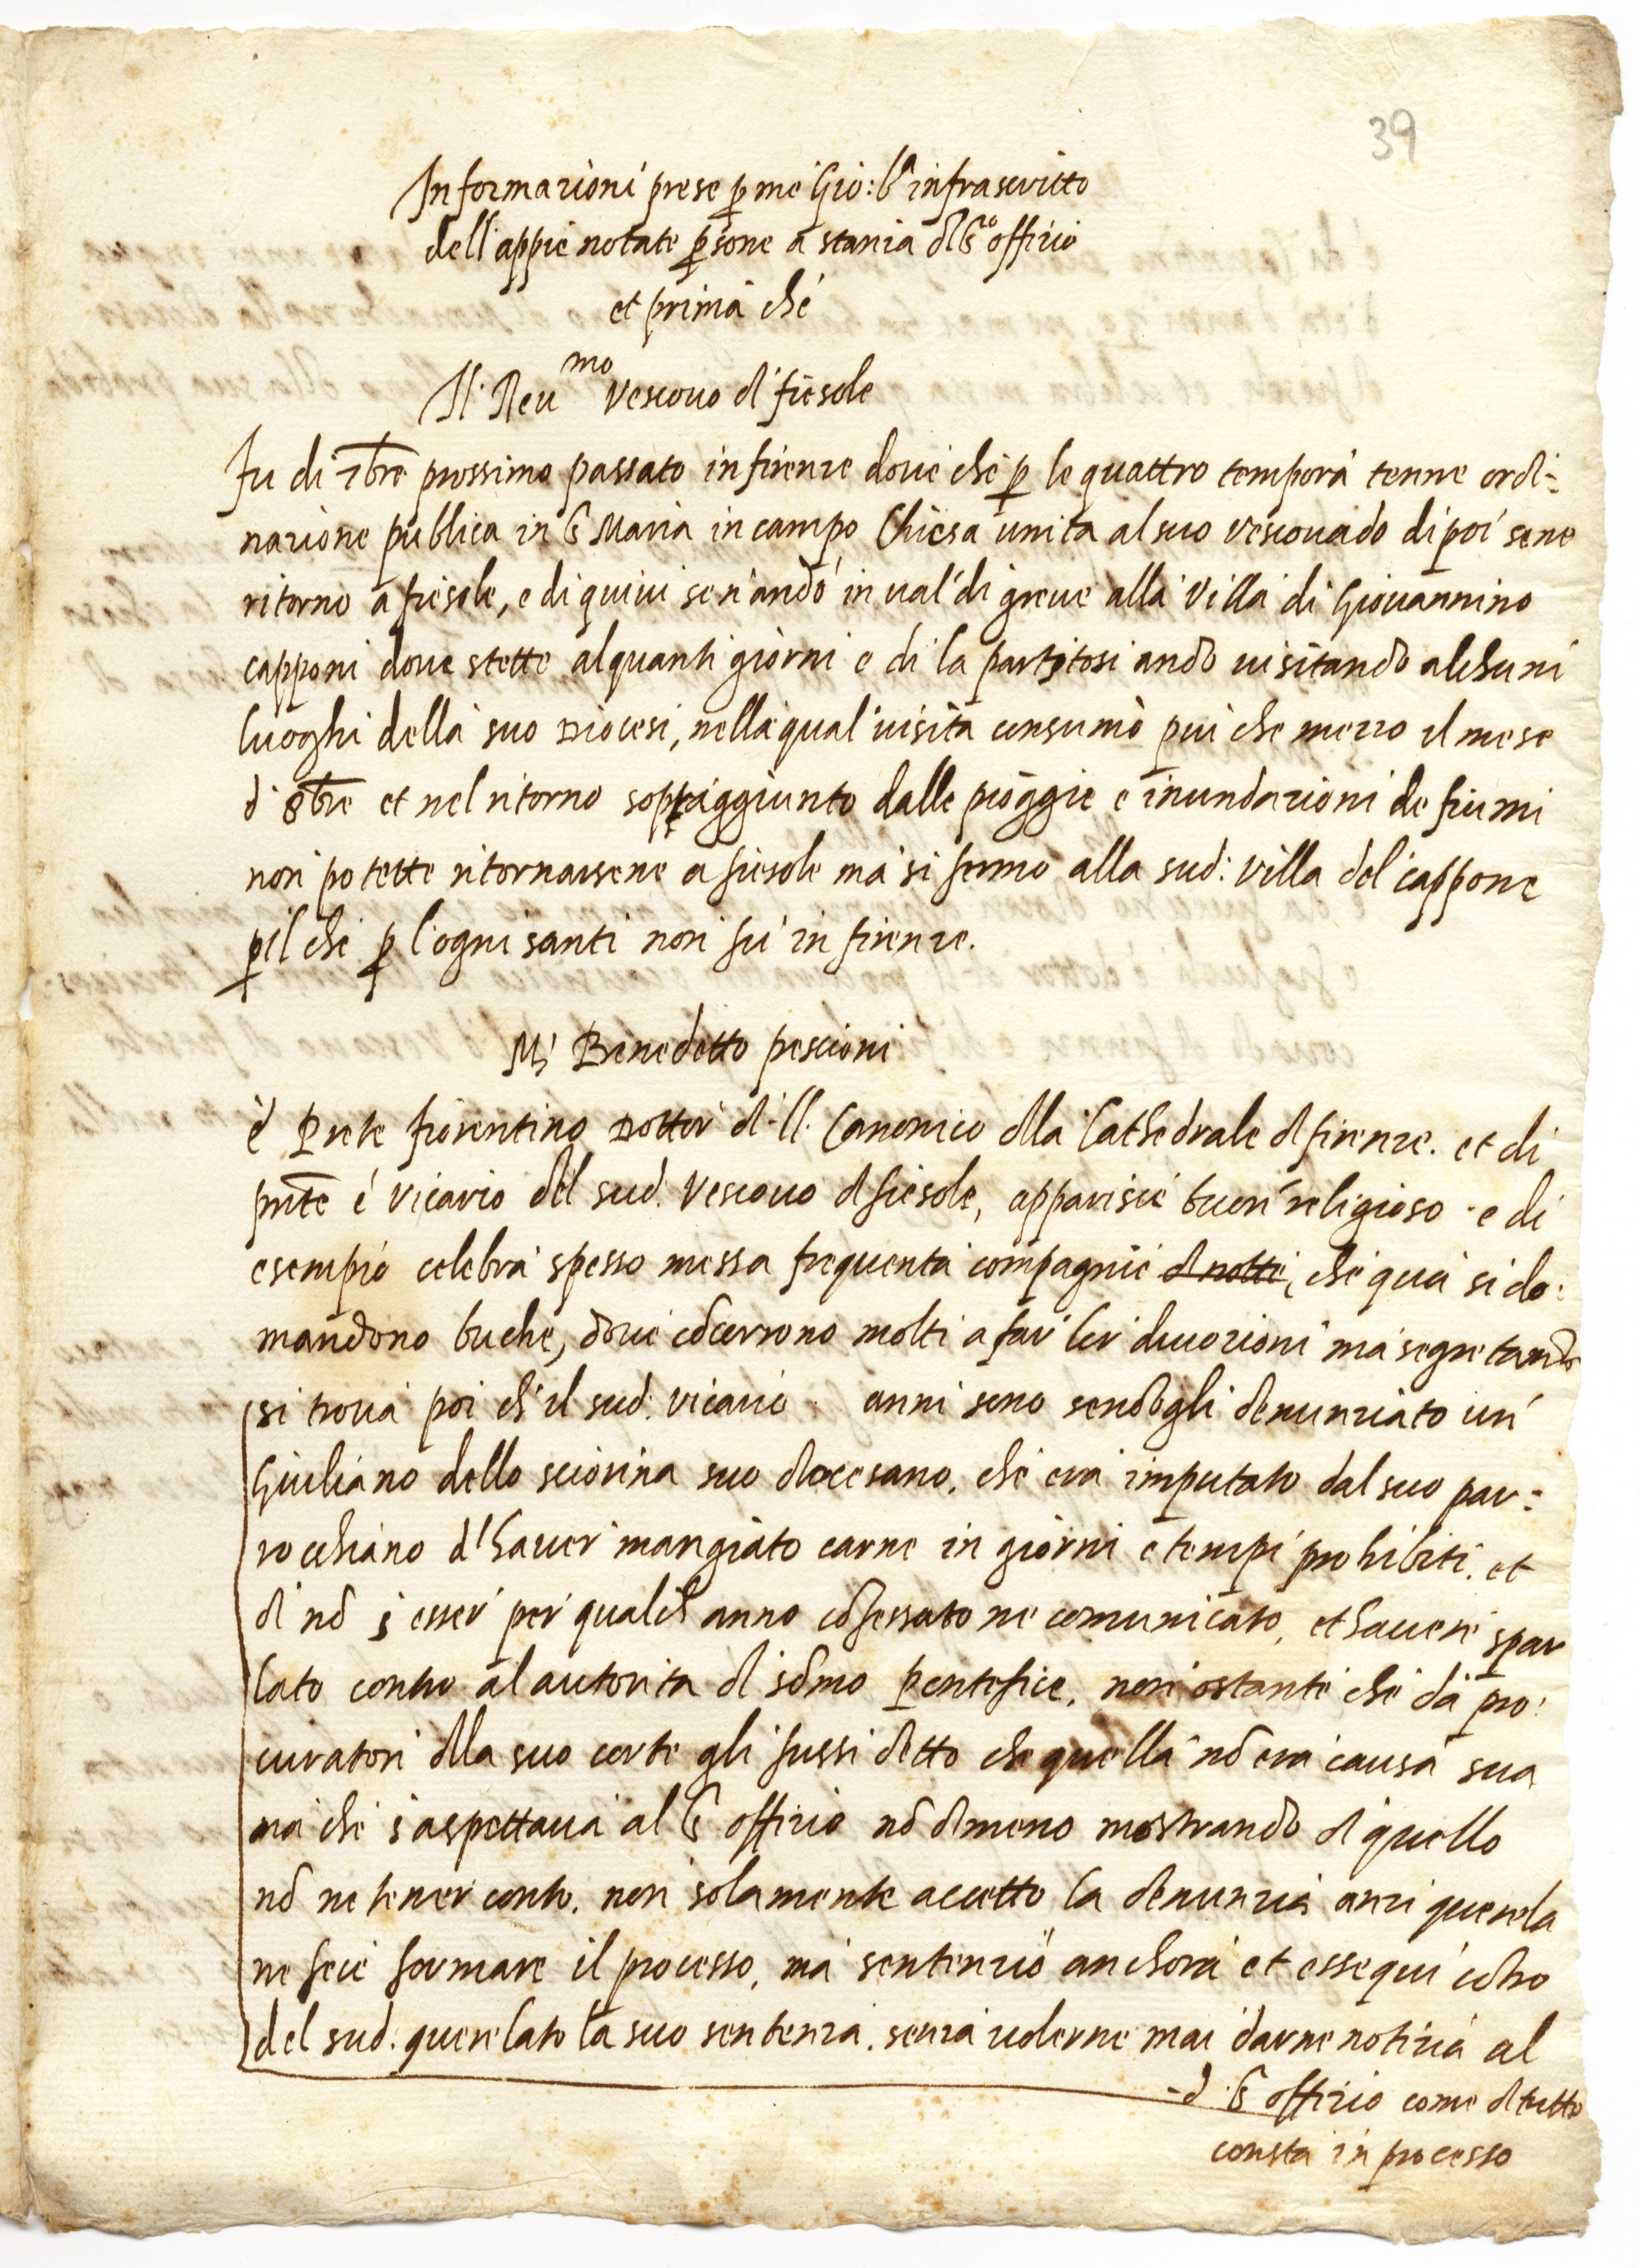 39
Informationi prese p me Gio: bta infrascritto
dell'appie notate psone a stanzia dl Sto offizio
et prima che
Il Reumo Vescouo di fiesole
fu di 7bre prossimo passato in firenze doue che p le quattro tempora tenne ordi=
nazione publica in S Maria in campo Chiesa unita al suo vescouado di poi sene
ritorno a fiesole, e di quiui se n'ando in ual' di greue alla Villa di Giouannino
capponi doue stette alquanti giorni e di la partitosi ando uisitando alchuni
luoghi della suo Diocesi, nella qual' uisita consumò piu che mezzo il mese
d' 8bre et nel ritorno sopraggiunto dalle pioggie e inundazioni de fiumi
non potette ritornarsene a fiesole ma si fermo alla sud: villa del cappone
p il che p l'ogni santi non fu in firenze.
Mr Benedetto pescioni
è Prete fiorentino Dottor d. ll. Canonico dlla Cathedrale d firenze. et di
pnte é vicario del sud. Vescouo d fiesole, apparisce buon religioso e di
esempio celebra spesso messa frequenta compagnie d notte, che qua si do:
mandono buche, doue cocorrono molti a far' lor' diuozioni ma segretamte
si troua poi ch' il sud. vicario anni sono sendogli denunziato un'
Giuliano dello sciorina suo diocesano, che era imputato dal suo par=
rochiano d'hauer mangiato carne in giorni e tempi prohibiti. et
di no s' esser' per qualch anno cofessato ne comunicato, et hauere spar
lato contro al autorita di somo Pontefice. non ostante che da pro:
curatori dlla suo corte gli fussi detto che quella no era causa sua
ma che s'aspettaua al S offizio no dimeno mostrando di quello
no ne tener conto. non solamente accetto la denunzia anzi querela
ne fece formare il processo, ma sentenziò anchora et essequì cotro
del sud: querelato la suo sentenza. senza uolerne mai darne notizia al
d. S offizio come d tutto
consta in processo